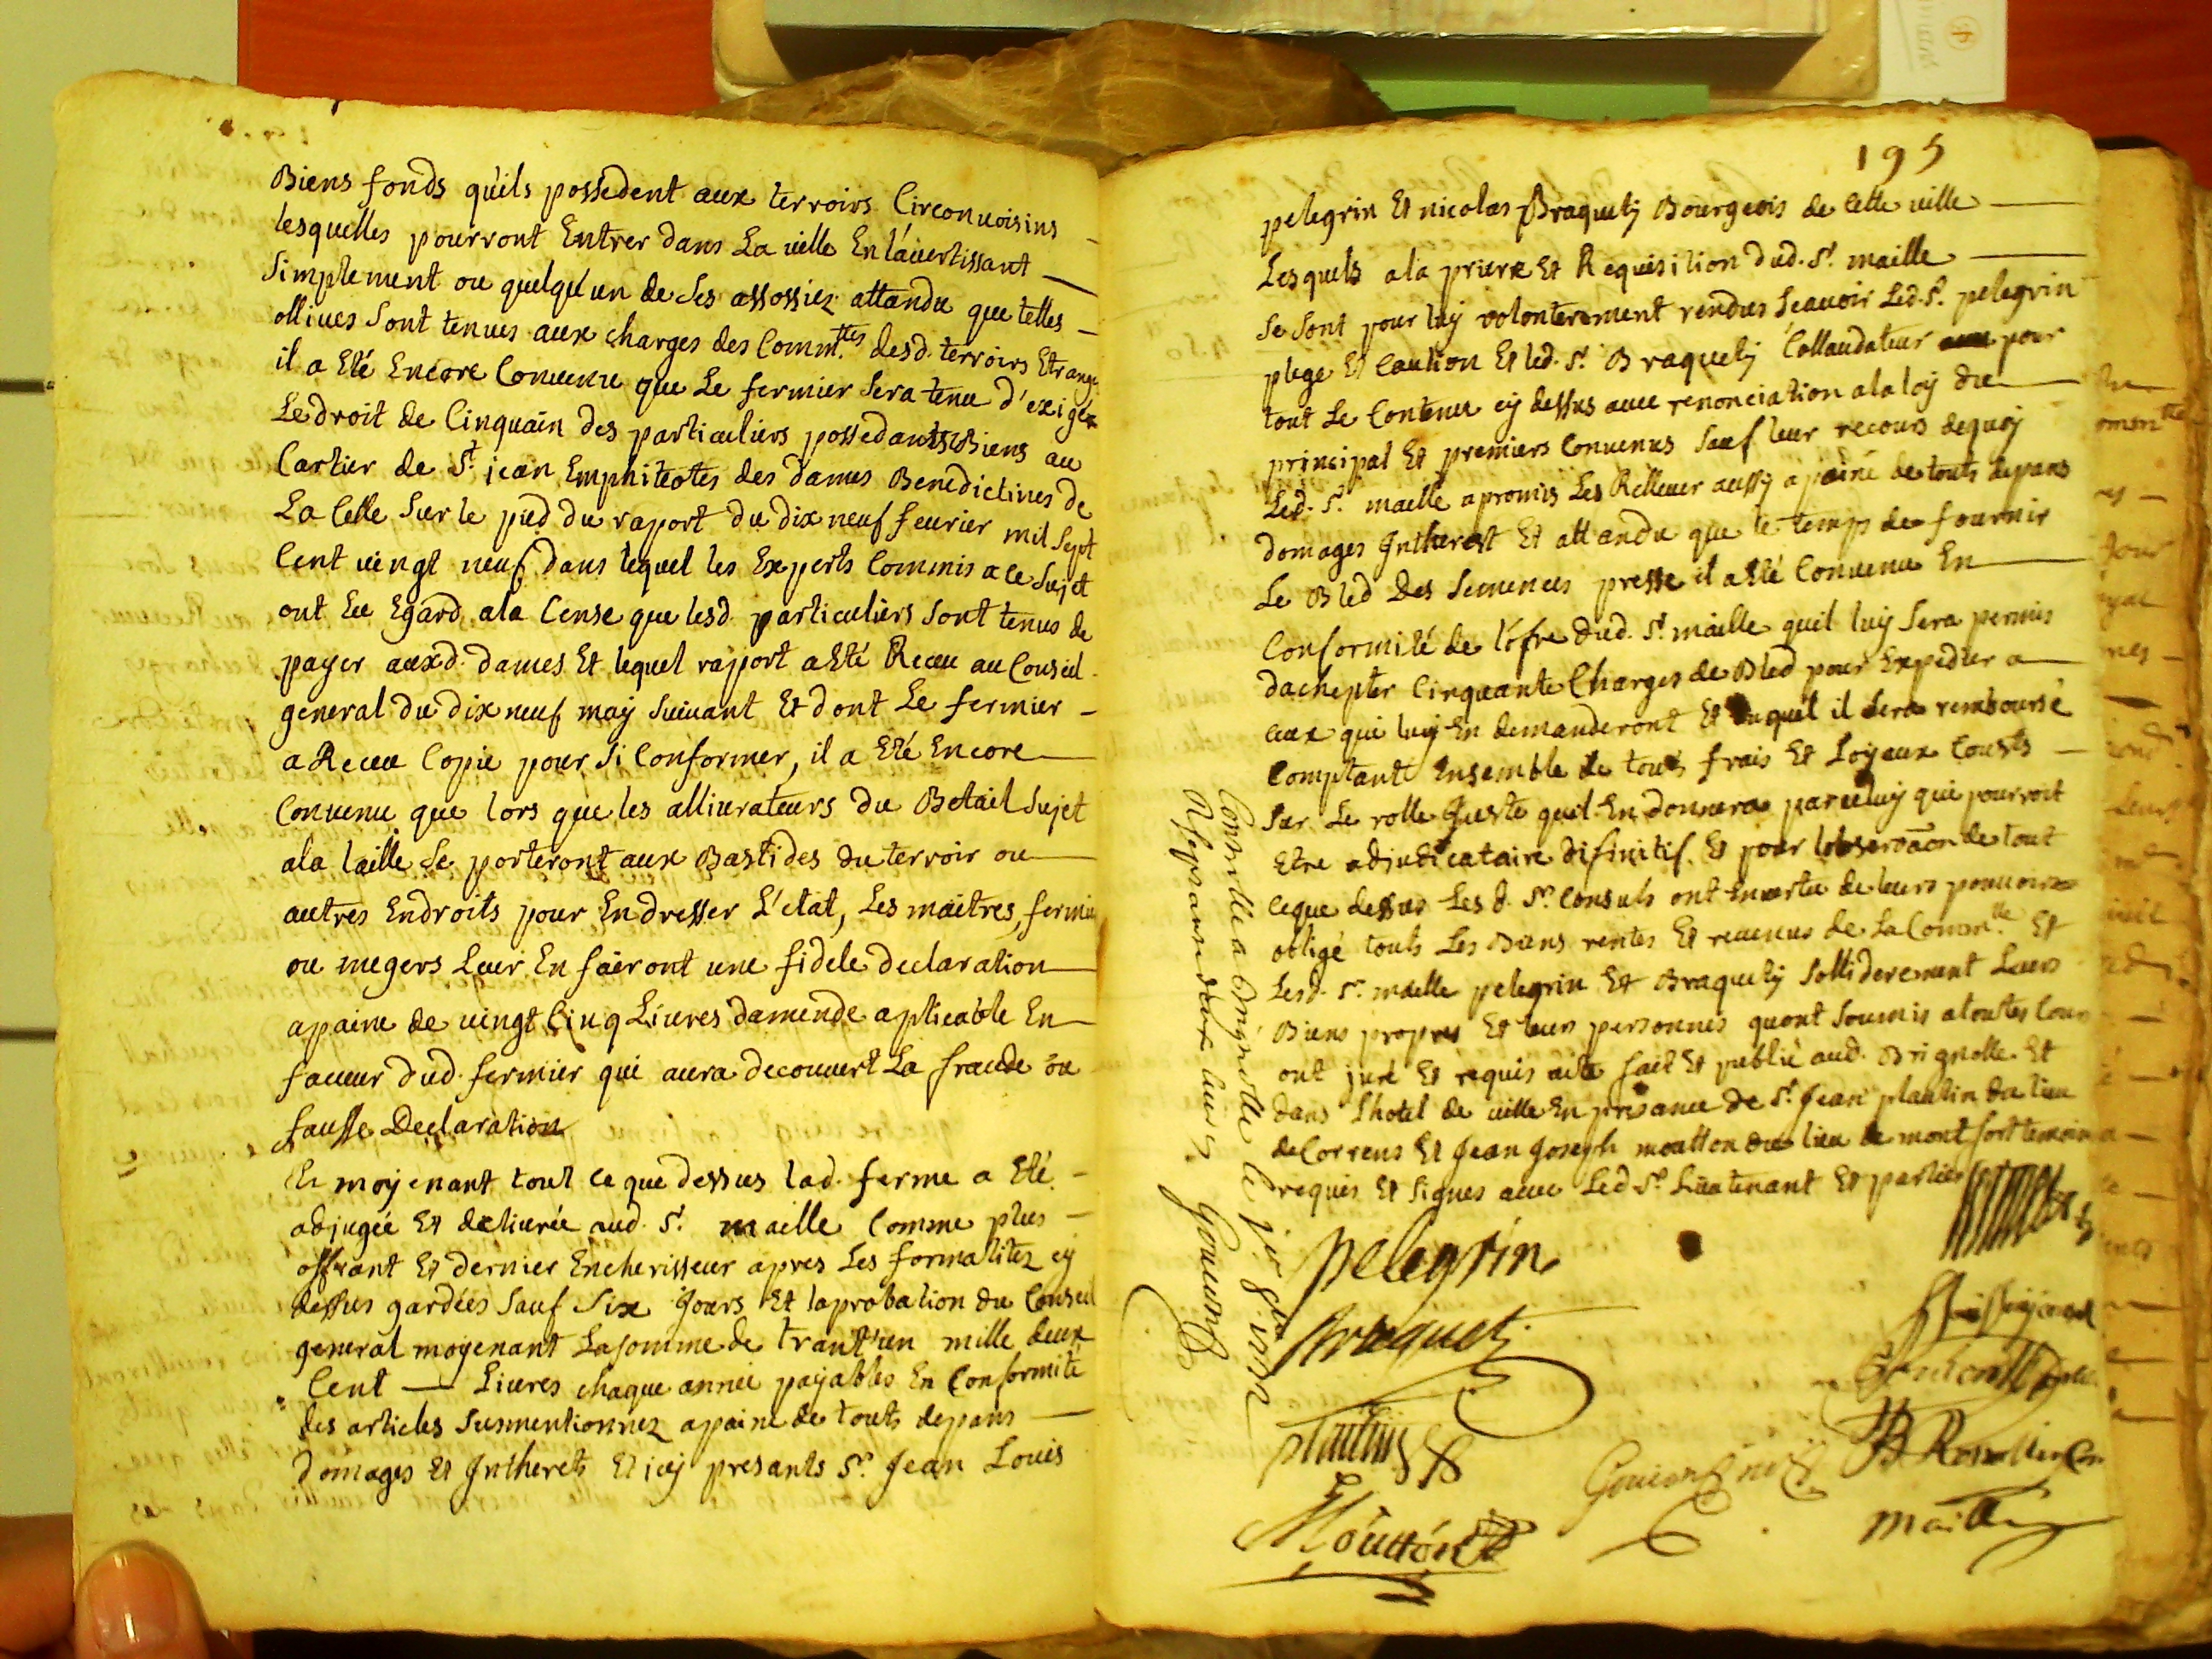 Biens fonds quils possedent aux terroirs Circonuoisins
lesquelles pourront Entrer dans La uille En lauertissant
Simplement ou quelqu'un de Ses assossiez attandu que telles
olliues Sont tenues aux charges des Comm.tes desd. terroirs Etrang
il a Eté Encore Conuenu que Le fermier Sera tenu d'exiger
Le droit de Cinquain des particuliers possedants Biens au
Cartier de St. jean Emphiteotes des dames Benedictines de
La Celle Sur le pied du raport du dix neuf feurier mil Sept
Cent uingt neuf dans lequel les Experts Commis a ce Sujet
ont Eu Egard ala Cense que lesd. particuliers Sont tenus de
payer auxd. dames Et lequel raport a Eté Receu au Conseil
general du dix neuf may Suiuant Et dont Le fermier
a Receu Copie pour Si Conformer, il a Eté Encore
Conuenu que lors que les alliurateurs du Betail Sujet
ala taille Se porteront aux Bastides du terroir ou
autres Endroits pour En dresser L'etat, Les maitres, fermie
ou megers Leur En fairont une fidele declaration
apaine de uingt Cinq Liures damende aplicable En
faueur dud. fermier qui aura decouuert La fraude ou
fausse Declaration
Et moyenant tout ce que dessus lad. ferme a Eté
adjugée Et deliurée aud. Sr. maille Comme plus
offrant Et dernier Encherisseur apres Les formalitez cy
dessus gardées Sauf Six Jours Et laprobation du Conseil
general moyenant La somme de trant'un mille deux
Cent Liures chaque année payables En Conformité
des articles Susmentionnez apaine de touts depans
domages Et Intherets Et icy presants Sr. Jean Louis
195
pelegrin Et nicolas Braquety Bourgeois de Cette uille
Lesquels ala priere Et Requisition dud. Sr. maille
Se Sont pour luy volonterement rendus Scauoir Led. Sr. pelegrin
plege Et Caution Et led. Sr. Braquety Collaudateur pour
tout Le Contenu cy dessus auec renonciation ala loy du
principal Et premiers Conuenus Sauf leur recours dequoy
Led. Sr. maille a promis Les Relleuer aussy apaine de touts depans
domages Intherest Et attandu que le temps de fournir
Le Bled Des Semences presse il a Eté Conuenu En
Conformité de l'ofre dud. Sr. maille quil luy Sera permis
dachepter Cinquante Charges de Bled pour Expedier a
ceux qui luy En demanderont Et duquel il Sera remboursé
Comptant Ensemble de touts frais Et Loyeaux Cousts
Sur Le rolle Juste quil En donnera par celuy qui pourroit
Etre adjudicataire difinitif. Et pour lobservaon de tout
ceque dessus Les d. Srs. Consuls ont En uertu de leurs pouuoirs
obligé touts Les Biens rentes Et reuenus de La Comm.te Et
Lesd. Srs. maille pelegrin Et Braquety Solliderement Leurs
Biens propres Et leurs personnes quont Soumis atoutes Cours
ont juré Et requis acte fait Et publié aud. Brignolle Et
dans Lhotel de uille En presance de Sr. Jean plautin du lieu
de Correns Et Jean Joseph moutton du lieu de montfort temoins
requis Et Signes auec Led Sr. Lieutenant Et parties
Pelegrin
Braquety
plautin
Moutton
maille
Controllé a Brignolle le